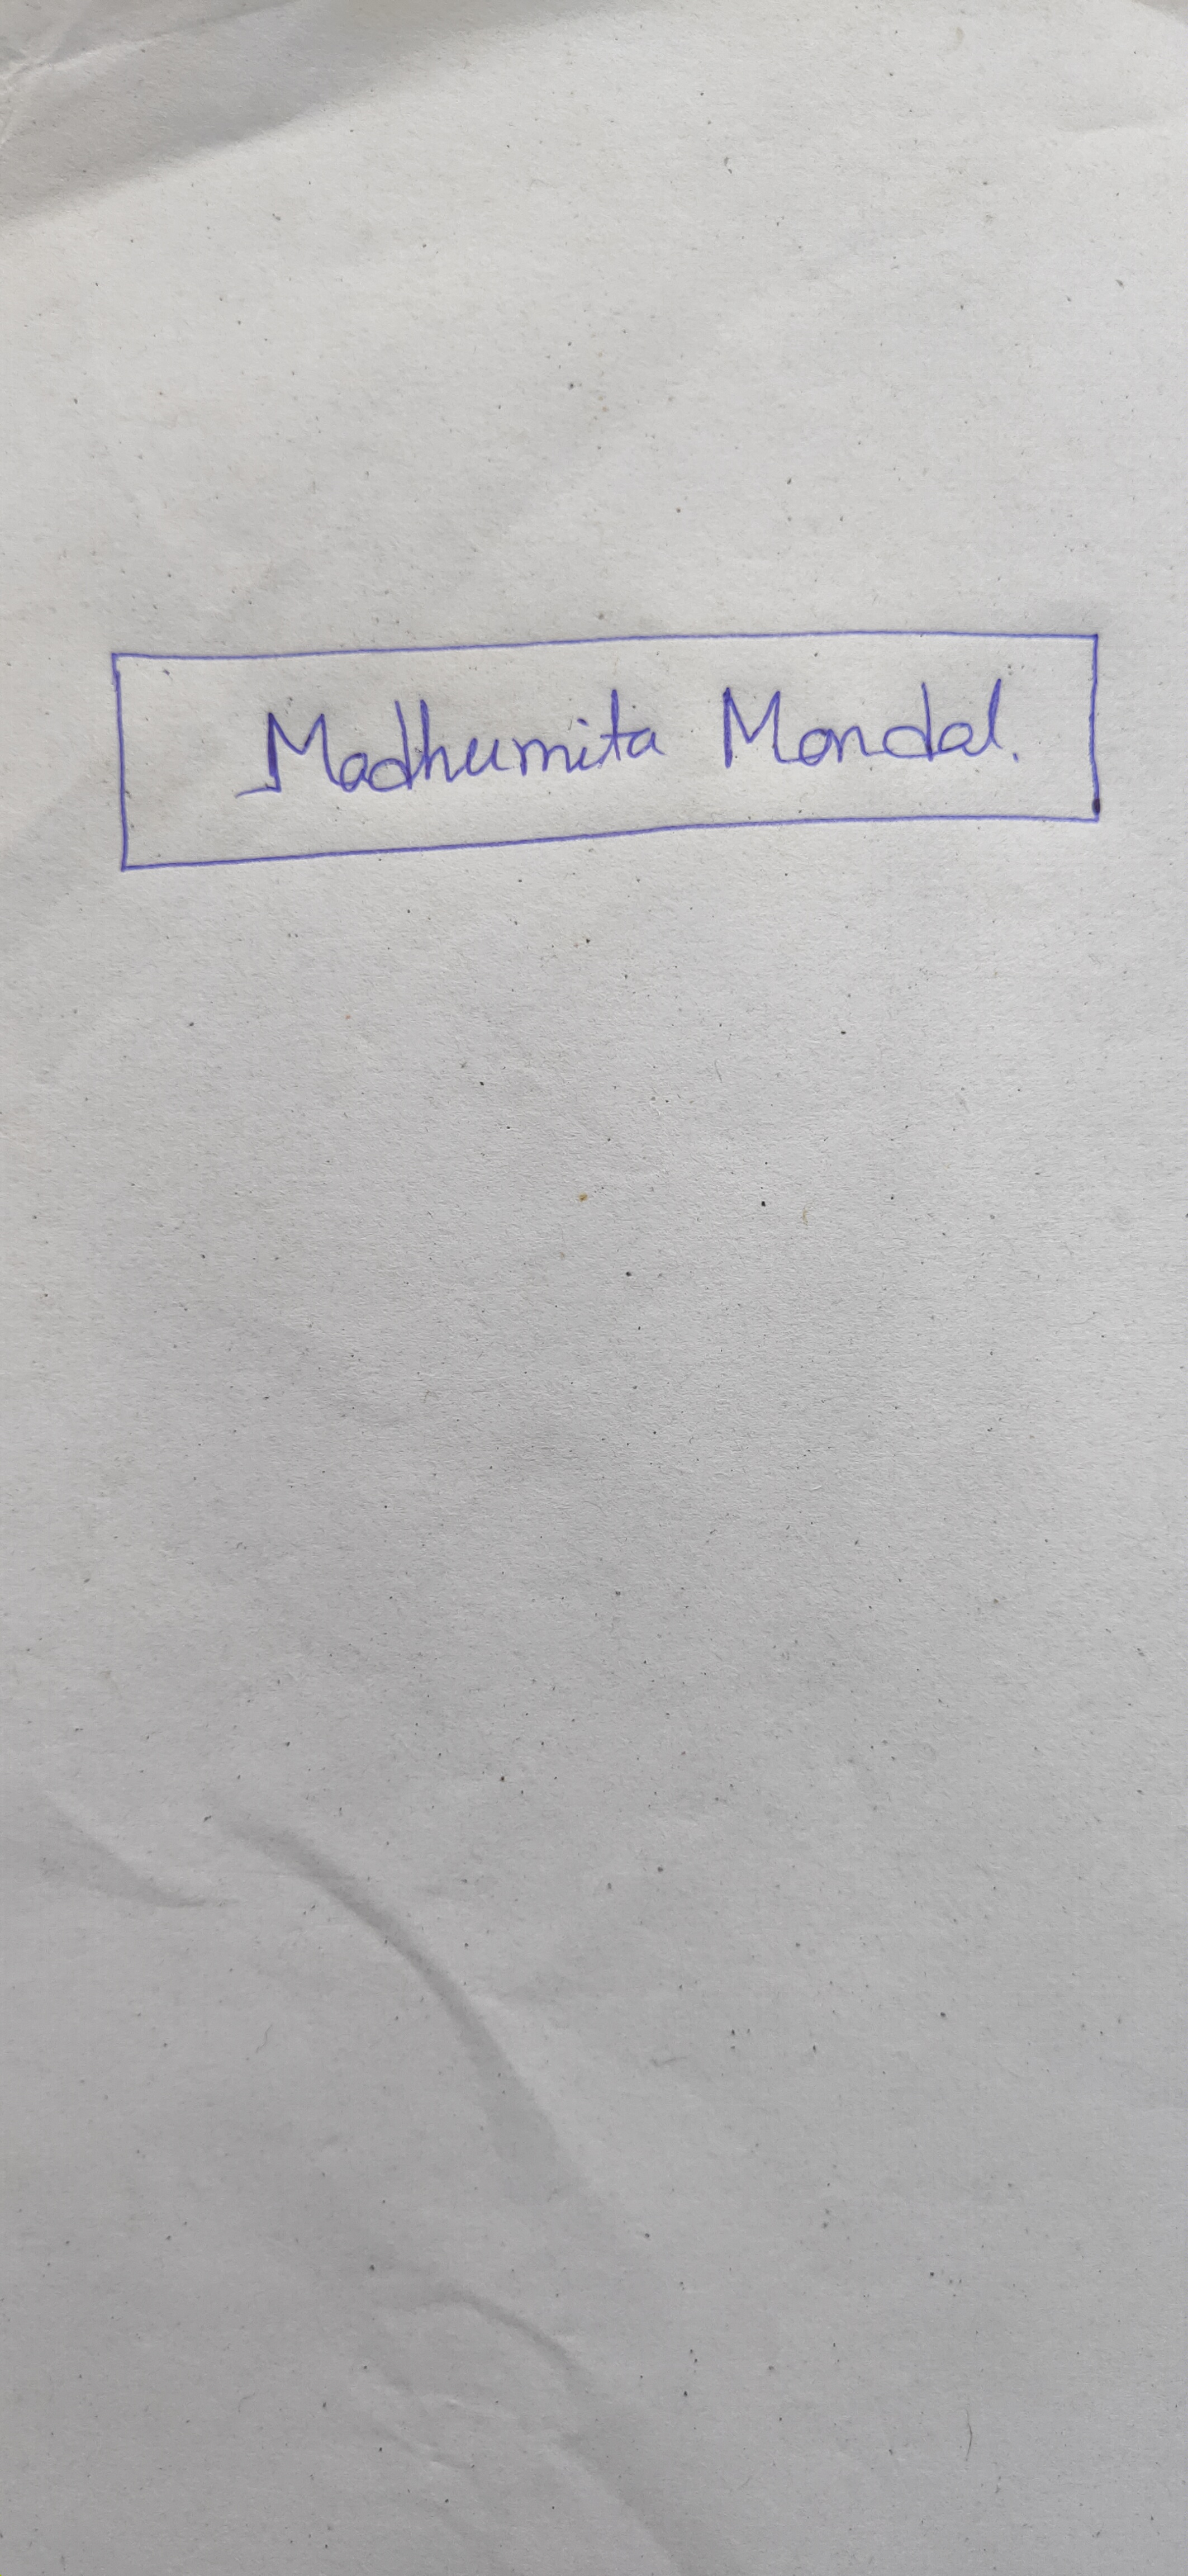 Madhumita Mondal.